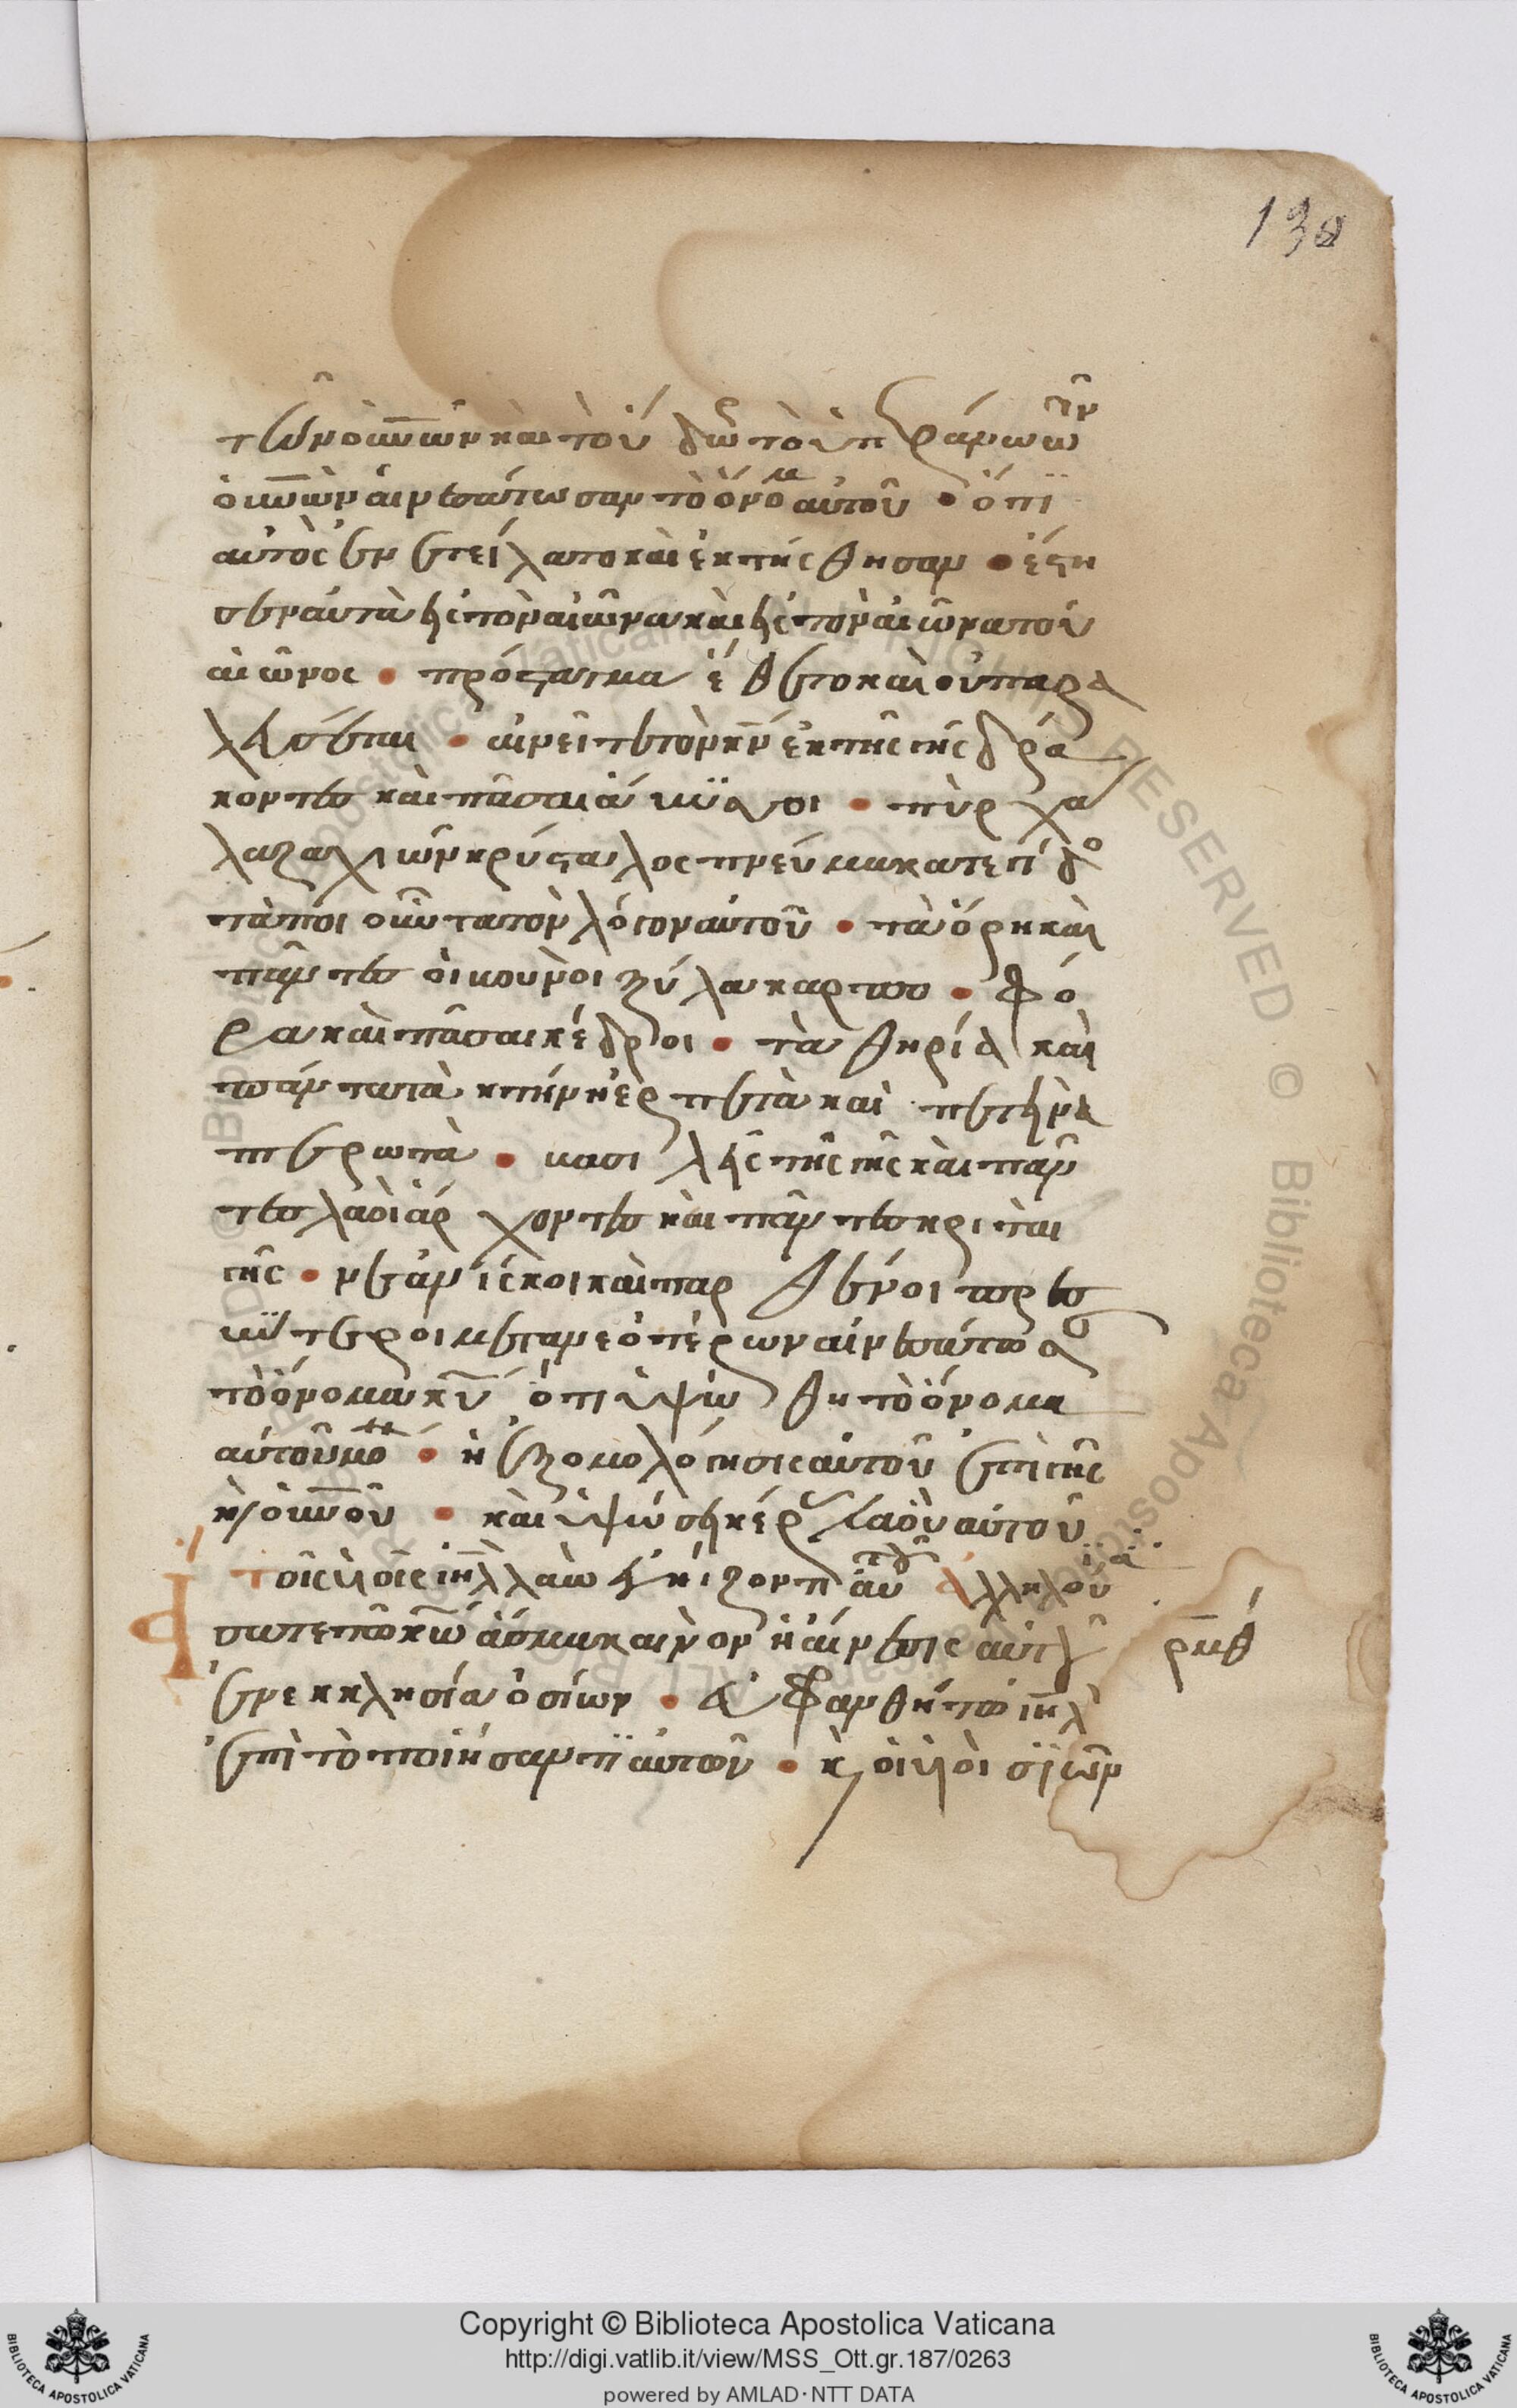 130
τῶν οὐνῶν καὶ τὸ ὕδωρ τὸ ὑπεράνω τῶν
οὐνῶν αἰνεσάτωσαν τὸ ὄνομα αὐτοῦ • ὅτι
αὐτὸς ἐνετείλατο καὶ ἐκτήσθησαν • ἔστη
σεν αὐτὰ εἰς τὸν αἰῶνα καὶ εἰς τὸν αἰῶνα τοῦ
αἰῶνος • πρόσταγμα ἔθετο καὶ οὐ παρε
λεύσεται • αἰνεῖτε τὸν κν ἐκ τῆς γῆς δρά
κοντες καὶ πᾶσαι ἄβυσσοι • πῦρ χά
λαζα χιὼν κρύσταλος πνεῦμα καταιγίδος
τὰ ποιοῦντα τὸν λόγον αὐτοῦ • τὰ ὄρη καὶ
πάντες οἱ βουνοὶ ξύλα καρπο • φό
ρα καὶ πᾶσαι κέδροι • τὰ θηρία καὶ
πάντα τὰ κτήνη ἑρπετὰ καὶ πετεινὰ
πτερωτὰ • βασιλεῖς τῆς γῆς καὶ πάν
τες λαοὶ ἄρχοντες καὶ πάντες κριταὶ
γῆς • νεανίσκοι καὶ παρθένοι πρεσ
βύτεροι μετὰ νεοτέρων αἰνεσάτωσαν
τὸ ὄνομα κυ ὅτι ὑψώθη τὸ ὄνομα
αὐτοῦ μο • ἡ ἐξομολόγησις αὐτοῦ ἐπὶ γῆς
κ οὐνοῦ • καὶ ὑψώσει κέρας λαοῦ αὐτοῦ
τοῖς υἱοῖς ιηλ λαῷ ἐγγίζοντι αὐτῷ ἀλληλούϊα
ᾄσατε τῷ κω ᾆσμα καινὸν ἡ αἴνεσις αὐτοῦ
ρμθ
ἐν ἐκκλησία ὁσίων • εὐφρανθήτω ιηλ
ἐπὶ τὸ ποιήσαντι αὐτὸν • κ οἱ υἱοὶ σϊὼν
Copyright © Biblioteca Apostolica Vaticana
http://digi.vatlib.it/view/MSS_Ott.gr.187/0263
powered by AMLAD·NTT DATA